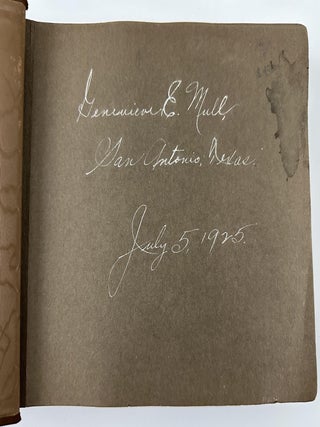 Genevieve E. Mull,
San Antonio, Texas.
July 5, 1925.